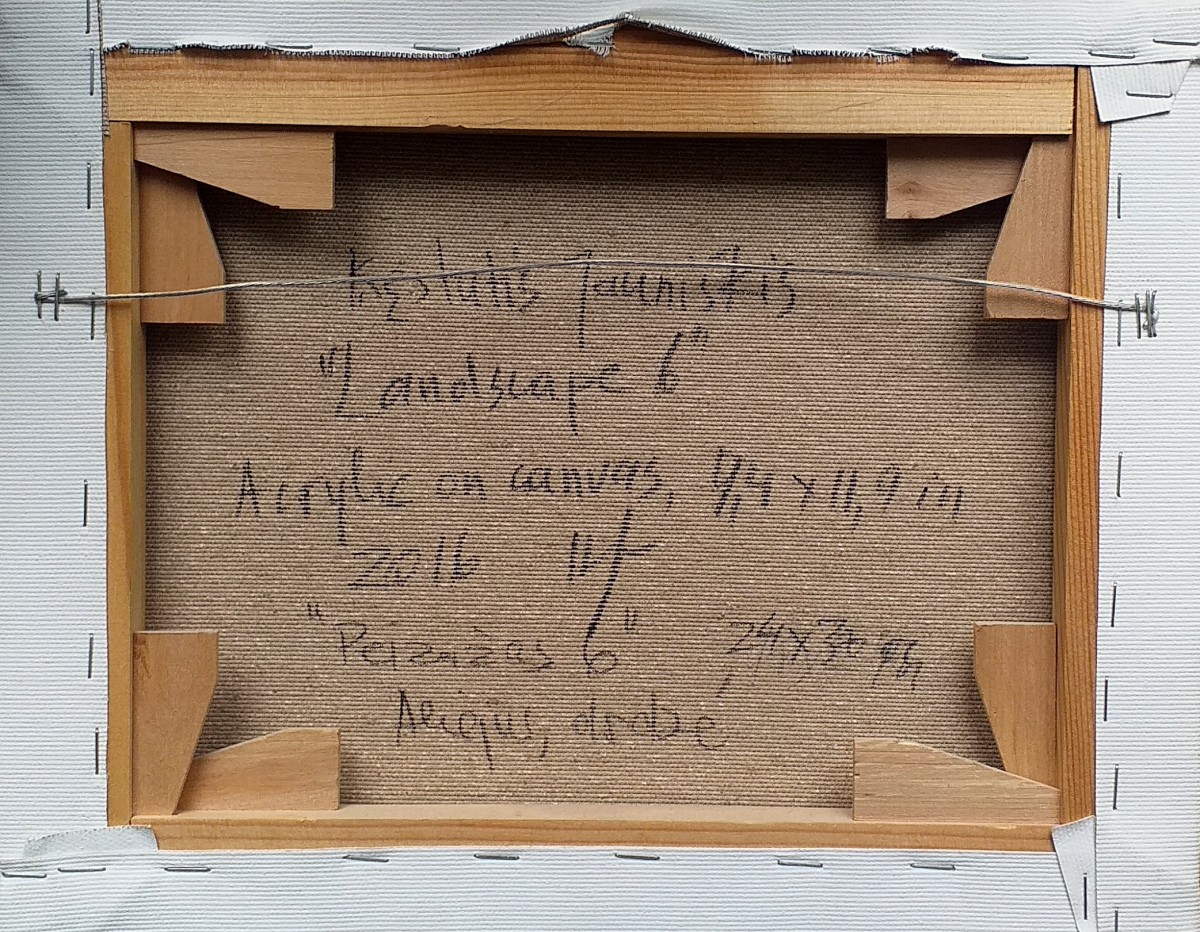 Kęstutis Jauniškis
"Landscape 6"
Acrylic on canvas, 9,4 x 11,9 in
2016
"Peizažas 6" 24 x 30 cm
Aliejus, drobė